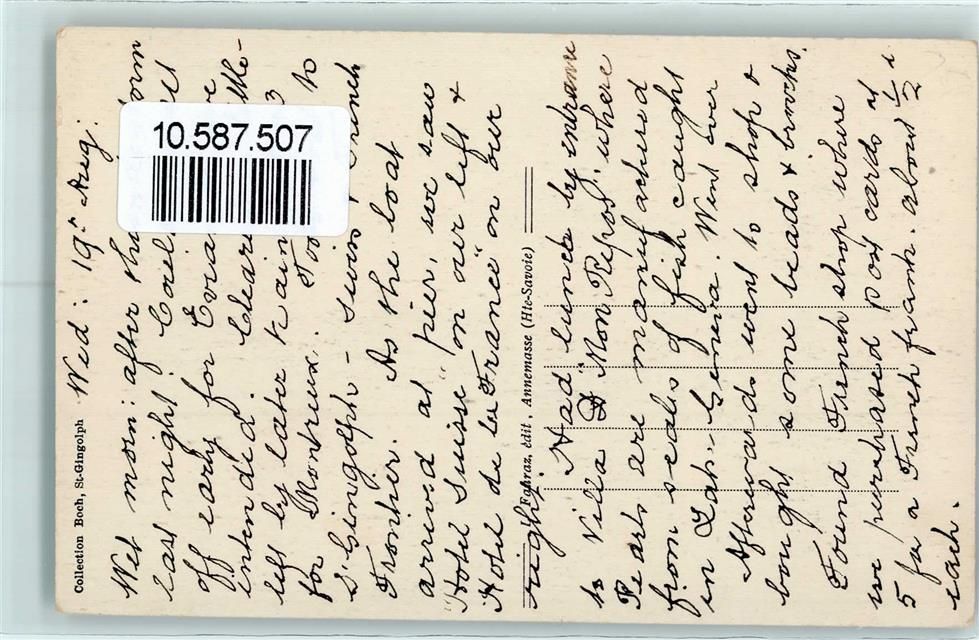 10.587.507
Collection Boch, St-Gingolph
Wed: 19th Aug.
Wet morn: after thu orm
last night! Could
off early for Evia
intended. Clear
left by later train
for Montreux. to
St Gingolph - Swiss French
Frontier. As the boat
arrived at pier, we saw
"Hotel Suisse" on our left &
Hotel de la France" on our
right.
Fabraz, édit, Annemasse (Hte-Savoie)
Had lunch by entrance
to Villa "Mon Repos", where
Pearls are manufactured
from scales of fish caught
in Lake Geneva. Went over
Afterwards went to shop &
bought some beads & brooches.
Found French shop where
we purchased post cards at
5 for a French frank. about ½ d
each.